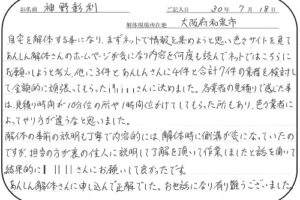 お名前 神野彰利 ご記入日 30年7月18日
解体現場所在地 大阪府和泉市
自宅を解体する事になり、まずネットで情報を集めようと思い色々サイトを見て
あんしん解体さんのホームページが気になり内容を何度も読んでネットではこちらに
お願いしようと考え、他に3件とあんしんさんに4件と合計7件の業者を検討し
て金額的に頑張ってもらった さんに決めました。各業者の見積りで感じた事
は、見積り時間が10分位の所や1時間位かけてしてもらった所もあり、色々業者に
よってやり方が違うなと思いました。
解体の事前の説明も丁寧で内容的には、解体時に側溝が気になっていたの
ですが、担当の方が裏の住人に説明して了解を頂いて作業しましたと話を聞いて
結果的に さんにお願いして良かったです。
あんしん解体さんに申し込んで正解でした。お世話になり有難うございました。